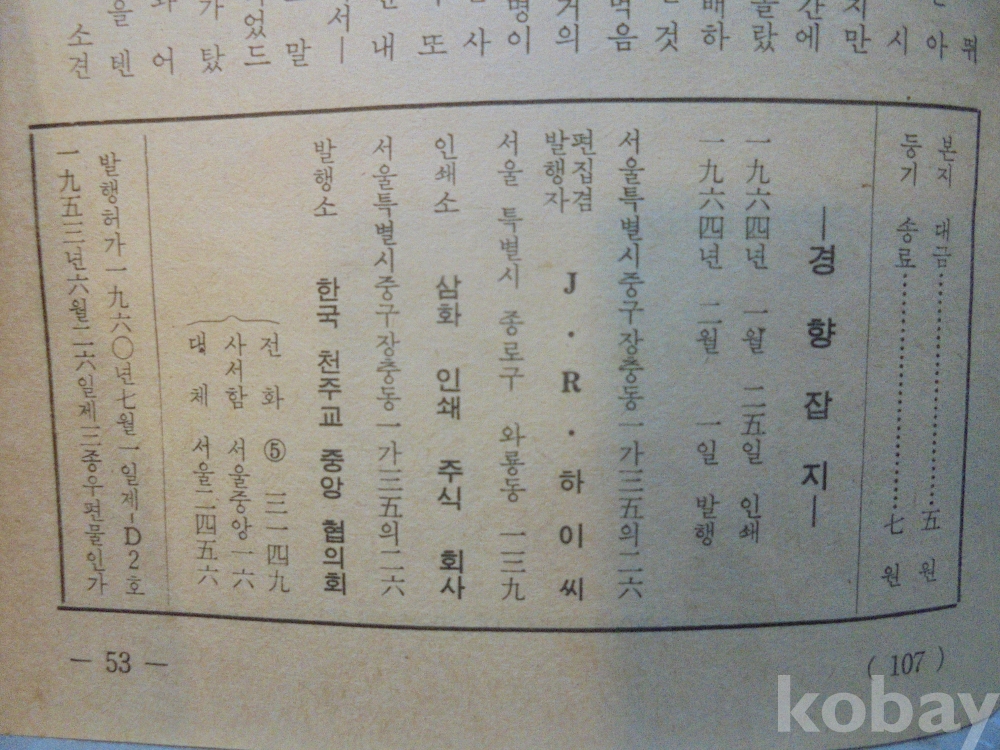 본지 대금……………………五 원
등기 송료……………………七 원
―경 향 잡 지―
一九六四年 一월 二五일 인쇄
一九六四年 二월 一일 발행
서울특별시중구장충동一가三五의二六
편집겸
발행자 J·R·하 이 씨
서울 특별시 종로구 와룡동 一三九
인쇄소 삼화 인쇄 주식 회사
서울특별시중구장충동一가三五의二六
발행소 한국 천주교 중앙 협의회
전 화 ⑤ 三一四九
사서함 서울중앙一六
대 체 서울二四五六
발행허가一九六〇년七월一일제-D2호
一九五三년六월二六일제三종우편물인가
― 53 ―
( 107 )
kobay